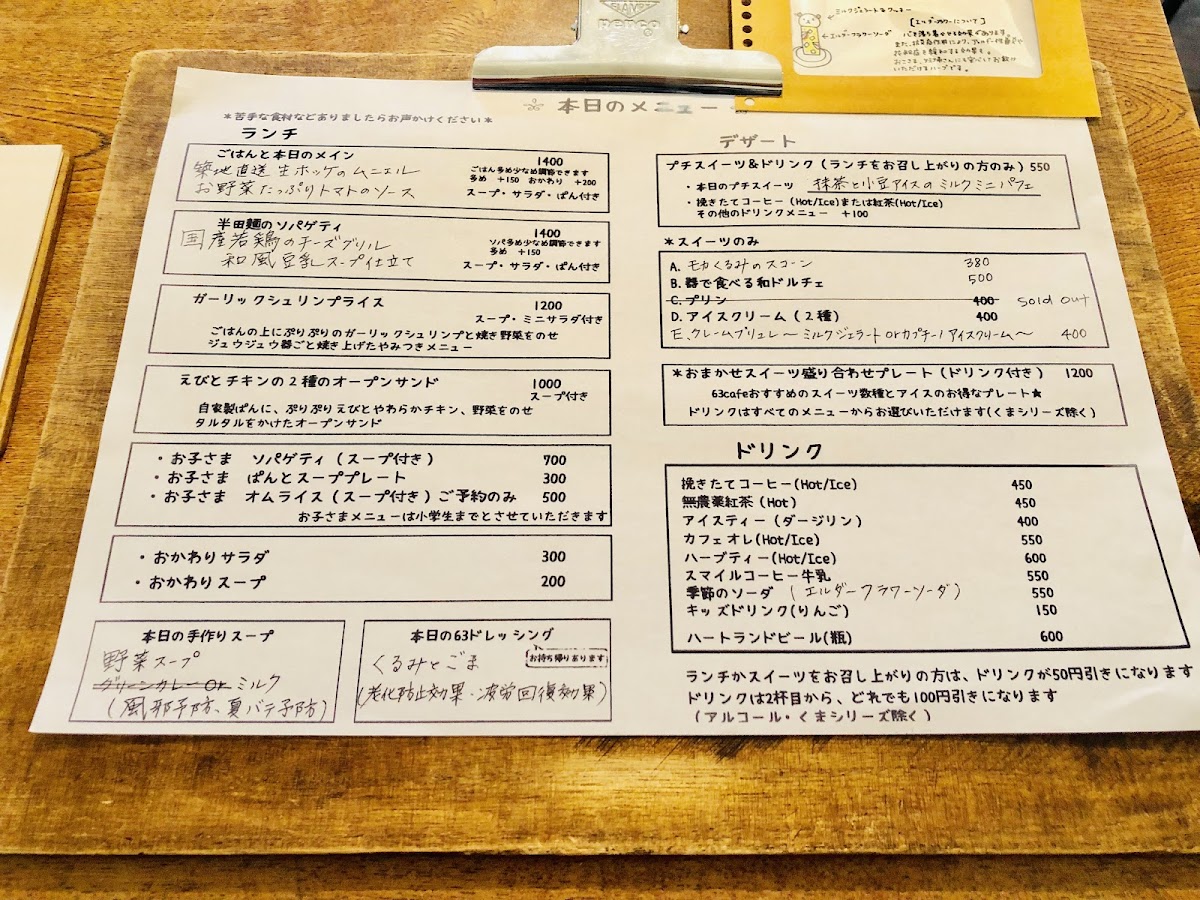 penco
ミルクジェラート&クッキー
エルダーフラワーソーダ
【エルダーフラワーについて】
いただけるハーブです。
本日のメニュー
*苦手な食材などありましたらお声かけください*
ランチ
ごはんと本日のメイン 1400
築地直送 生ホッケのムニエル
お野菜たっぷりトマトのソース
ごはん多め少なめ調節できます
多め +150 おかわり +200
スープ・サラダ・ぱん付き
半田麺のソパゲティ 1400
国産若鶏のチーズグリル
和風豆乳スープ仕立て
ソパ多め少なめ調節できます
多め +150
スープ・サラダ・ぱん付き
ガーリックシュリンプライス 1200
スープ・ミニサラダ付き
ごはんの上にぷりぷりのガーリックシュリンプと焼き野菜をのせ
ジュウジュウ器ごと焼き上げたやみつきメニュー
えびとチキンの2種のオープンサンド 1000
スープ付き
自家製ぱんに、ぷりぷりえびとやわらかチキン、野菜をのせ
タルタルをかけたオープンサンド
・お子さま ソパゲティ(スープ付き) 700
・お子さま ぱんとスーププレート 300
・お子さま オムライス(スープ付き)ご予約のみ 500
お子さまメニューは小学生までとさせていただきます
・おかわりサラダ 300
・おかわりスープ 200
本日の手作りスープ
野菜スープ
グリーンカレー or ミルク
(風邪予防、夏バテ予防)
本日の63ドレッシング
くるみとごま
お持ち帰りあります
(老化防止効果・疲労回復効果)
デザート
プチスイーツ&ドリンク(ランチをお召し上がりの方のみ) 550
・本日のプチスイーツ 抹茶と小豆アイスのミルクミニパフェ
・挽きたてコーヒー(Hot/Ice)または紅茶(Hot/Ice)
その他のドリンクメニュー +100
*スイーツのみ
A. モカくるみのスコーン 380
B. 器で食べる和ドルチェ 500
C. プリン 400 Sold out
D. アイスクリーム(2種) 400
E. クレームブリュレ〜ミルクジェラート orカプチーノアイスクリーム〜 400
*おまかせスイーツ盛り合わせプレート(ドリンク付き) 1200
63cafeおすすめのスイーツ数種とアイスのお得なプレート★
ドリンクはすべてのメニューからお選びいただけます(くまシリーズ除く)
ドリンク
挽きたてコーヒー(Hot/Ice) 450
無農薬紅茶(Hot) 450
アイスティー(ダージリン) 400
カフェオレ(Hot/Ice) 550
ハーブティー(Hot/Ice) 600
スマイルコーヒー牛乳 550
季節のソーダ (エルダーフラワーソーダ) 550
キッズドリンク(りんご) 150
ハートランドビール(瓶) 600
ランチかスイーツをお召し上がりの方は、ドリンクが50円引きになります
ドリンクは2杯目から、どれでも100円引きになります
(アルコール・くまシリーズ除く)